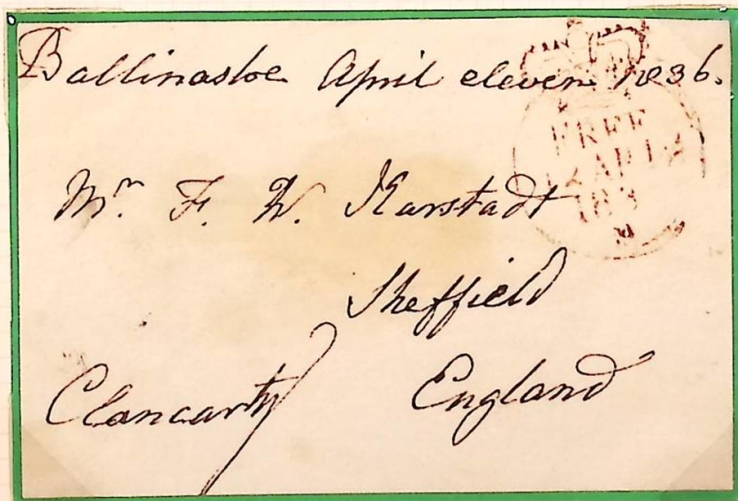 Ballinasloe April eleven 1836.
FREE
12 AP 12
183
Mr. F. W. Karstadt
Sheffield
England
Clancarty